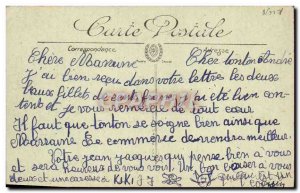 Carte Postale
Correspondance Adresse
Chère Marraine Cher tonton André
J'ai bien reçu dans votre lettre les deux
beaux billets de cent francs j'ai été bien con
tent et je vous remercie de tout cœur
Il faut que tonton se soigne bien ainsi que
Marraine. Le commerce de rendra meilleur.
Votre jean jacques qui pense bien à vous
et sera heureux de vous voir. Un bon baiser à vous
deux et une caresse à KIKI J J